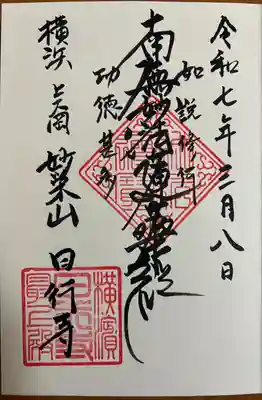 令和七年三月八日
如説修行
南無妙法蓮華経
功徳甚多
横浜 上大岡 妙栄山 日行寺
横濱